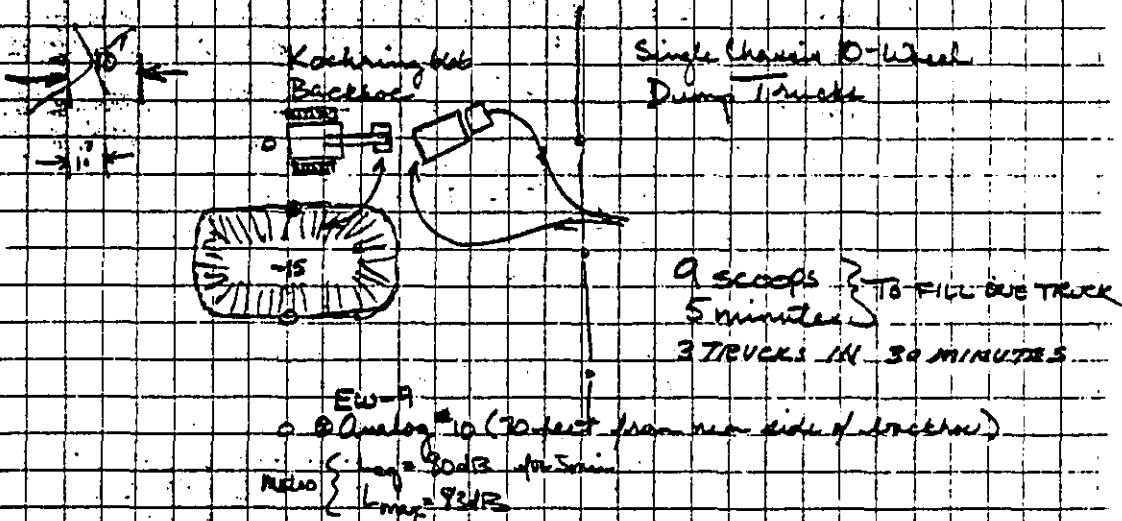 Backhoe
Single Chassis 10-Wheel
Dump Trucks
-15
9 scoops
5 minutes
} TO FILL ONE TRUCK
3 TRUCKS IN 30 MINUTES
EW-9
Analog #10 (70 feet from near side of backhoe)
Leq = 80dB for 5min
Lmax = 93dB